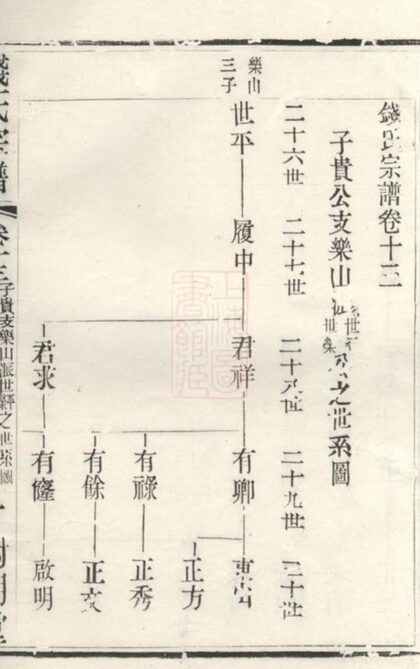 錢氏宗譜卷十三
子貴公支樂山派世平世榮公之世系圖
二十六世 二十七世 二十八世 二十九世 三十世
樂山
三子
世平 履中 君祥 有卿
正方
有祿 正秀
有餘 正文
君求 有隆 啟明
錢氏宗譜 卷十三 子貴支樂山派世平世榮之世系圖 一